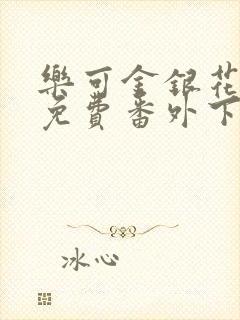 樂可金銀花
免費番外下
冰心